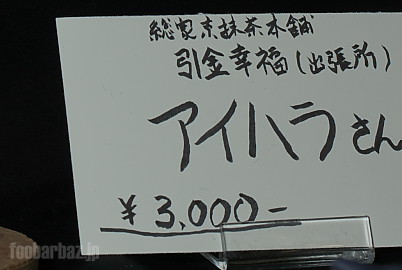 総製末抹茶本舗
引金幸福(出張所)
アイハラさん
¥3,000-
foobarbaz.jp